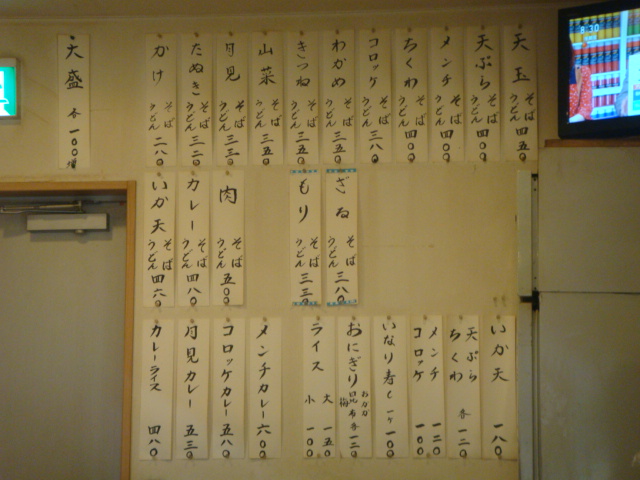 天玉 そば うどん 四五〇
天ぷら そば うどん 四〇〇
メンチ そば うどん 四〇〇
ちくわ そば うどん 四〇〇
コロッケ そば うどん 三八〇
わかめ そば うどん 三五〇
きつね そば うどん 三五〇
山菜 そば うどん 三五〇
月見 そば うどん 三三〇
たぬき そば うどん 三二〇
かけ そば うどん 二八〇
大盛 各一〇〇増
ざる そば うどん 三八〇
もり そば うどん 三三〇
肉 そば うどん 五〇〇
カレー そば うどん 四八〇
いか天 そば うどん 四六〇
いか天 一八〇
天ぷら ちくわ 各一二〇
メンチ 一二〇
コロッケ 一〇〇
いなり寿し 一ヶ 一〇〇
おにぎり おかか 昆布 梅 各一二〇
ライス 大 一五〇 小 一〇〇
メンチカレー 六〇〇
コロッケカレー 五八〇
月見カレー 五三〇
カレーライス 四八〇
8:30